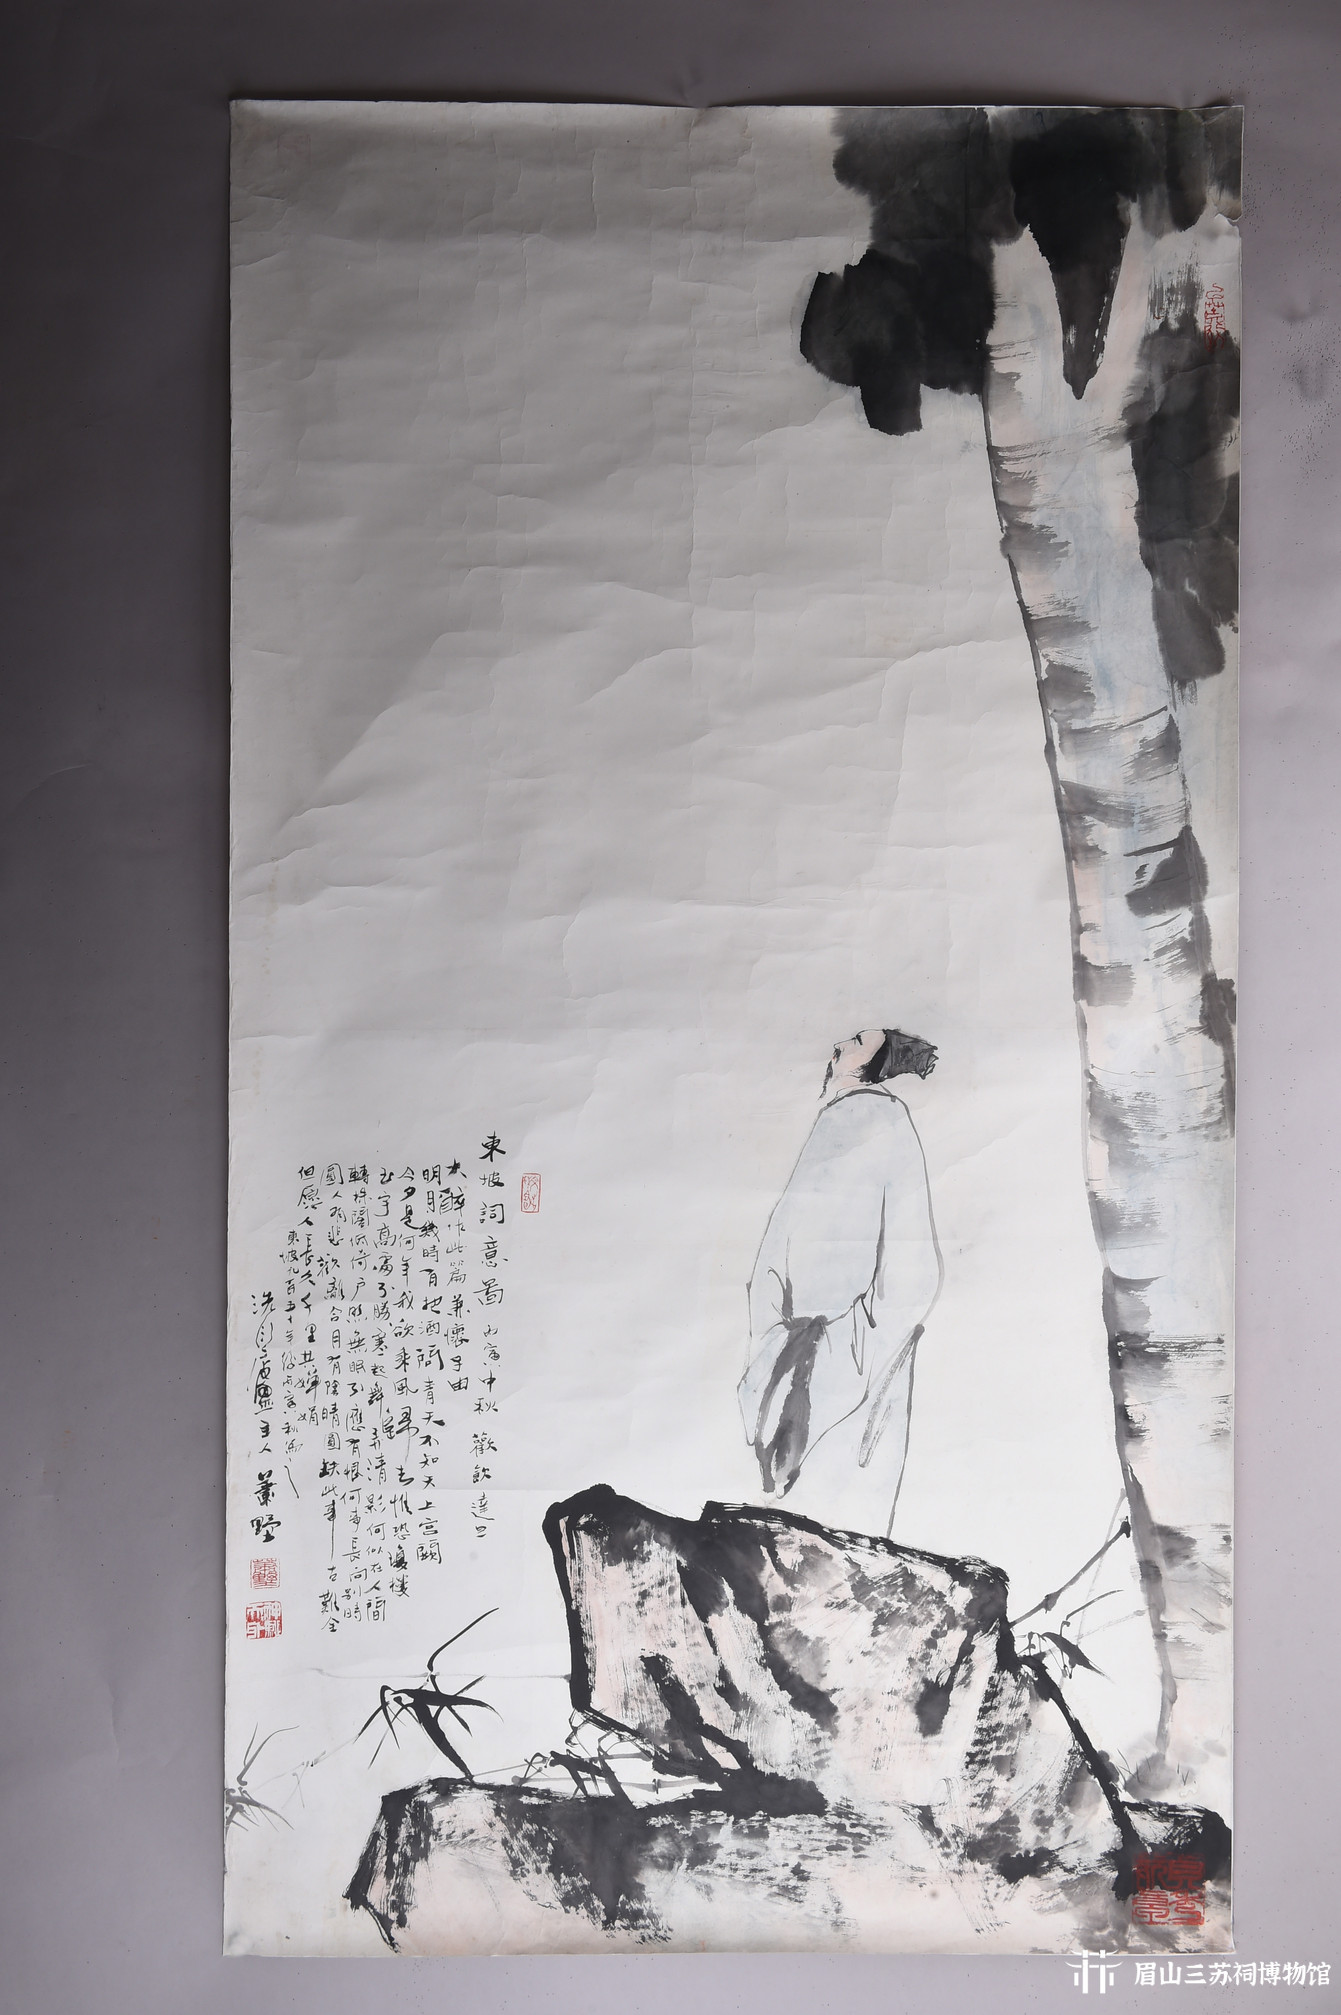 東坡詞意圖 丙寅中秋 歡飲達旦
大醉作此篇兼懷子由
明月幾時有把酒問青天不知天上宮闕
今夕是何年我欲乘風歸去惟恐瓊樓
玉宇高處不勝寒起舞弄清影何似在人間
轉株閣低倚戶照無眠不應有恨何事長向別時
圓人有悲歡離合月有陰晴圓缺此事古難全
但願人長久千里共嬋娟
東坡九百五十年後丙寅秋
洗 廬主人 蕭墅
眉山三苏祠博物馆